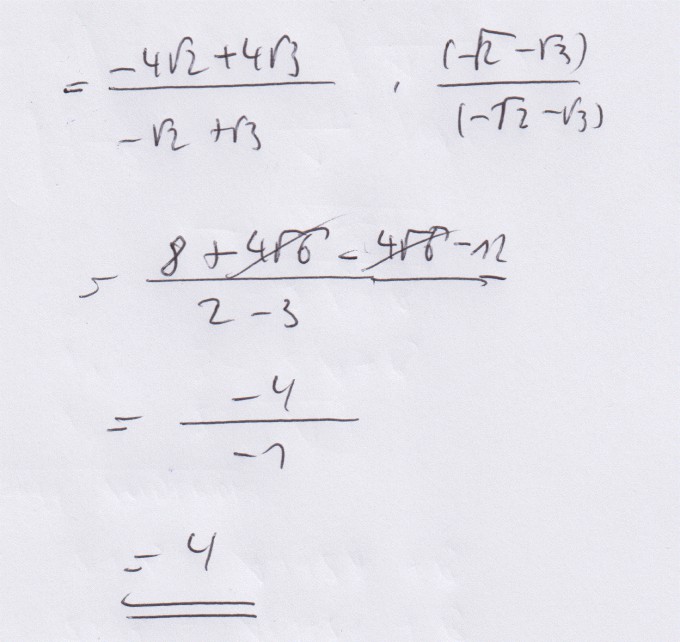 = (-4√2 + 4√3) / (-√2 + √3) · (-√2 - √3) / (-√2 - √3)
= (8 + 4√6 - 4√6 - 12) / (2 - 3)
= -4 / -1
= 4